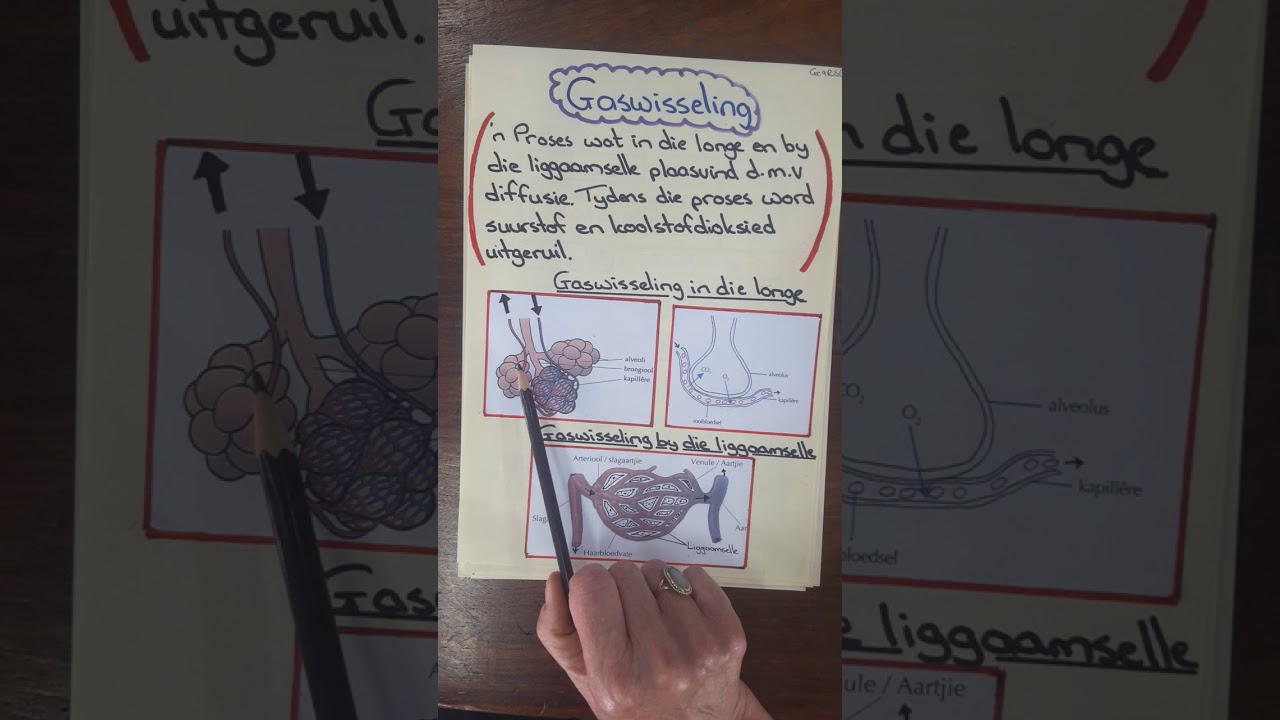 Gaswisseling
'n Proses wat in die longe en by
die liggaamselle plaasvind d.m.v
diffusie. Tydens die proses word
suurstof en koolstofdioksied
uitgeruil.
Gaswisseling in die longe
alveoli
brongiool
kapillêre
CO₂
O₂
alveolus
kapillêre
rooibloedsel
Gaswisseling by die liggaamselle
Arteriool / slagaartjie
Venule / Aartjie
Haarbloedvate
Liggaamselle
uitgeruil.
in die longe
O₂
alveolus
kapillêre
bloedsel
die liggaamselle
ule / Aartjie